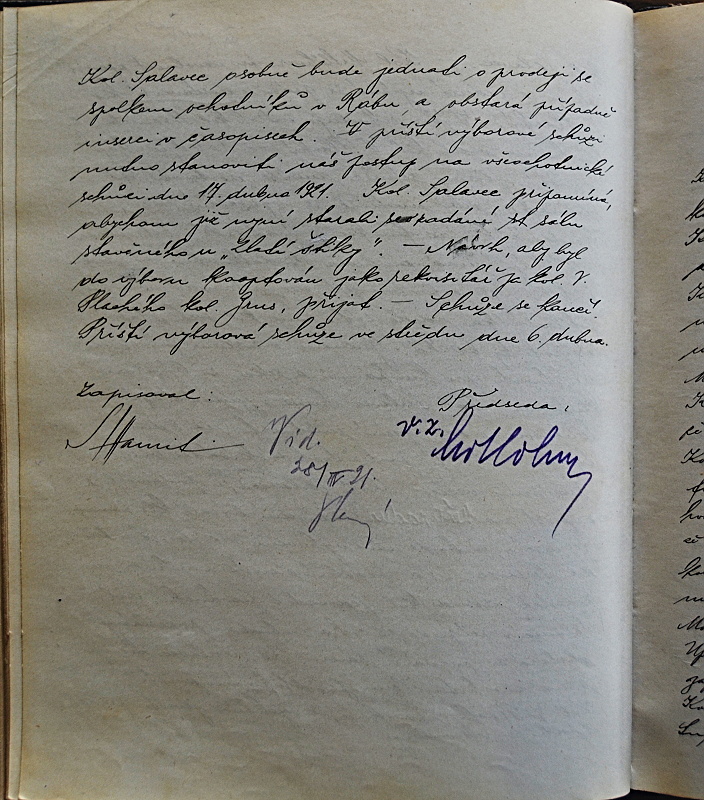 Kol. Splavec osobně bude jednati o prodeji se
spolkem ochotníků v Rábu a obstará případně
inserci v časopisech. V příští výborové schůzi
nutno stanoviti náš postup na všeochotnické
schůzi dne 17. dubna 1921. Kol. Splavec připomíná,
abychom již nyní starali se o zadání st. sálu
stavěného u „Zlaté štiky". – Návrh, aby byl
do výboru kooptován jako rekvisitář za kol. V.
Plachého kol. Grus, přijat. – Schůze se končí.
Příští výborová schůze ve středu dne 6. dubna.
Zapisoval:
Předseda:
Vid.
v. z.
28/III 21.